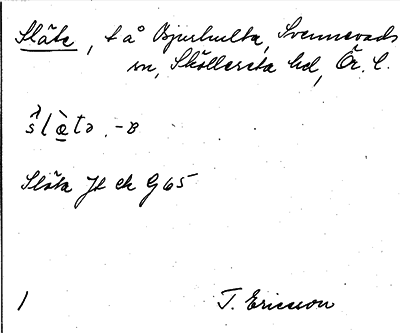 Släta, t å Bjurhulta, Svennevads
sn, Sköllersta hd, Ör. l.
slæ̀tə, -B
Släta Jk ek G65
1 T. Ericsson